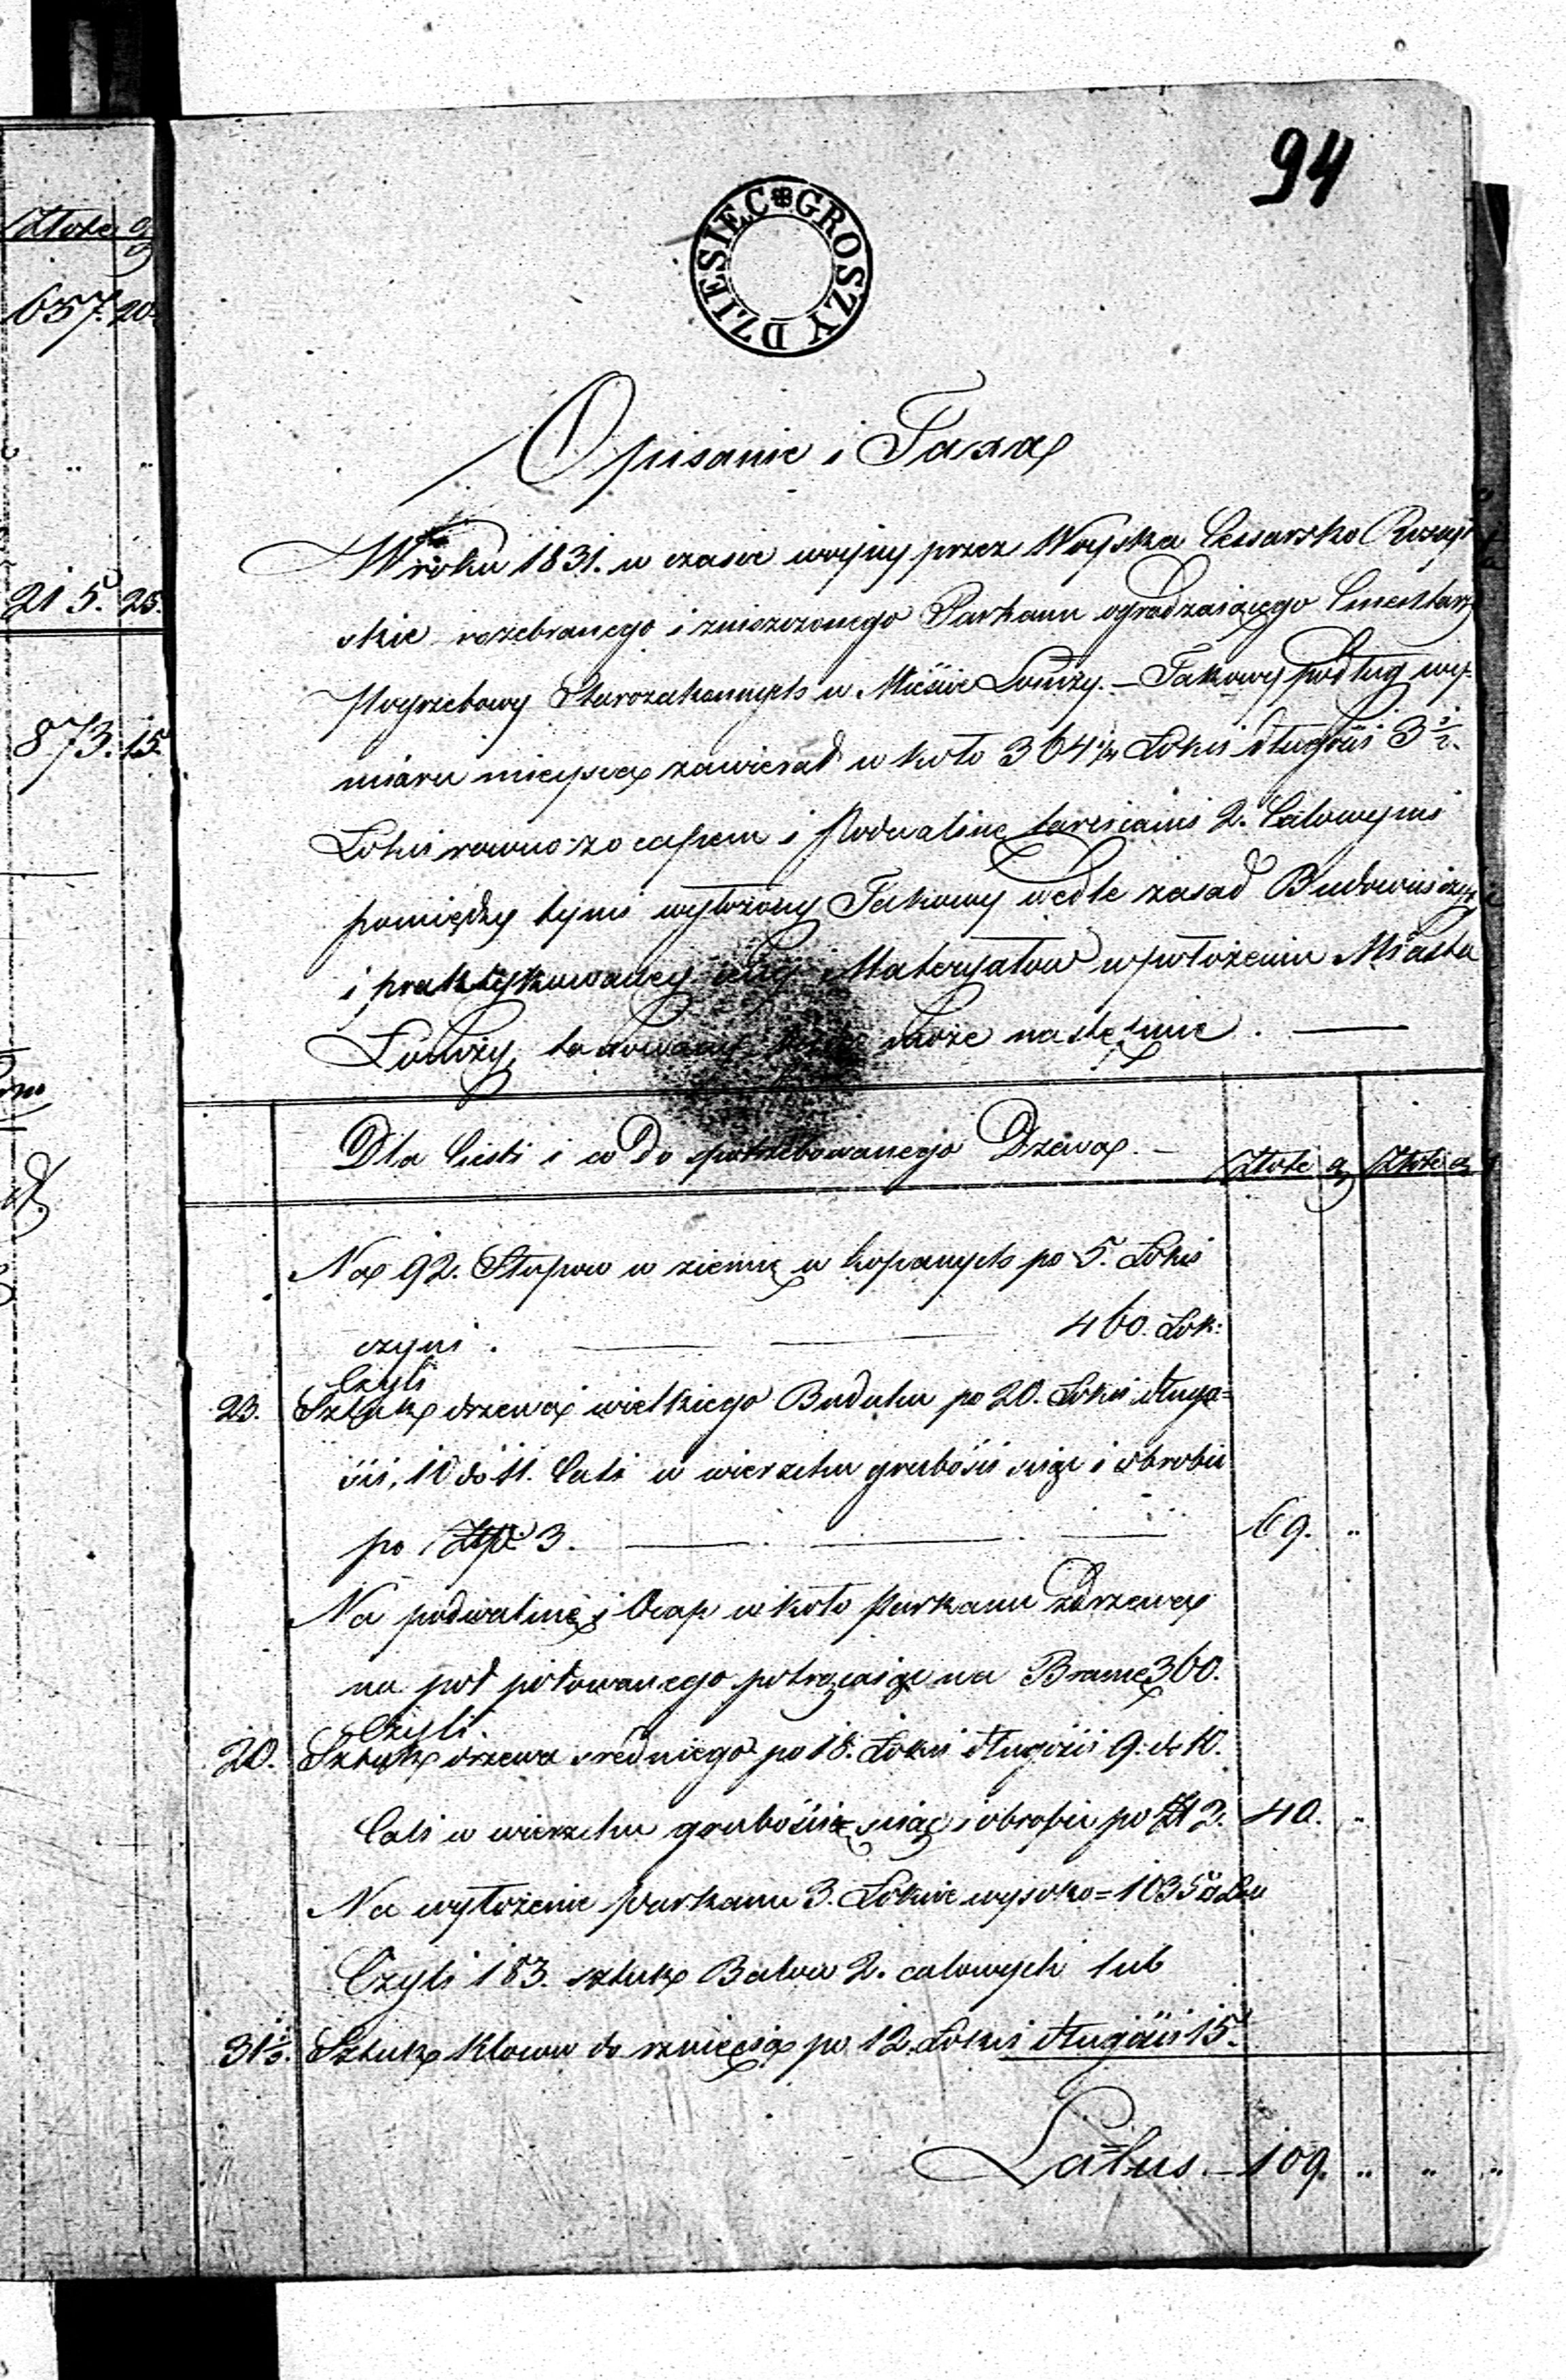 94
DZIESIEC GROSZY
Złote g
657. 20.
215. 25.
873. 15.
Opisanie i Taxa
W roku 1831. w czasie wojny przez Woyska Cesarsko Rossyi
skie rozebranego i zniszczonego Parkanu ogradzaiącego Cmentarz
Pogrzebowy Starozakonnych w Mieście Łomży. – Takowy podług wy-
miaru mieysca zawierał w koło 364 1/2 Łokci długości 3 1/2.
Łokci rowno z ocapem i Podwaline tarcicami 2. Calowymi
pomiędzy tymi wyłożony Takowy wedle zasad Budowniczych
i praktykowaney ceny Materyałow w położeniu Miasta
Łomży, taxowany może następnie. —
Dla Cieśli i co do spotrzebowanego Drzewa. – Złote g Złote g
Na 92. Słupow w ziemię w kopanych po 5. Łokci
czyni. — 460. Łok:
Czyli
23. Sztuk drzewa wielkiego Budulcu po 20. Łokci długo=
ści, 10 do 11. Cali w wierzchu grubości i obrobić
po Złp. 3. — 69. „
Na podwalinę i Ocap w koło Parkanu z drzewa
na pół piłowanego potrącaiąc na Bramę 360.
Czyli.
20. Sztuk drzewa sredniego po 18. Łokci długości 9. do 10.
Cali w wierzchu grubości i obrobić po Zł 2. 40. „
Na wyłożenie Parkanu 3. Łokcie wysoko = 1035
Czyli 183. sztuk Balow 2. calowych lub
31 1/2. Sztuk Klocow do rznięcia po 12. Łokci długości 15.
Latus. – 109. „ „ „